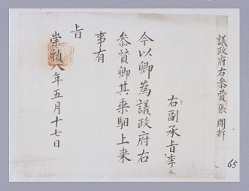 議政府右參贊張 開拆
右副承旨李
今以卿爲議政府右
參贊卿其乘馹上來
事有
旨
崇禎八年五月十七日
65